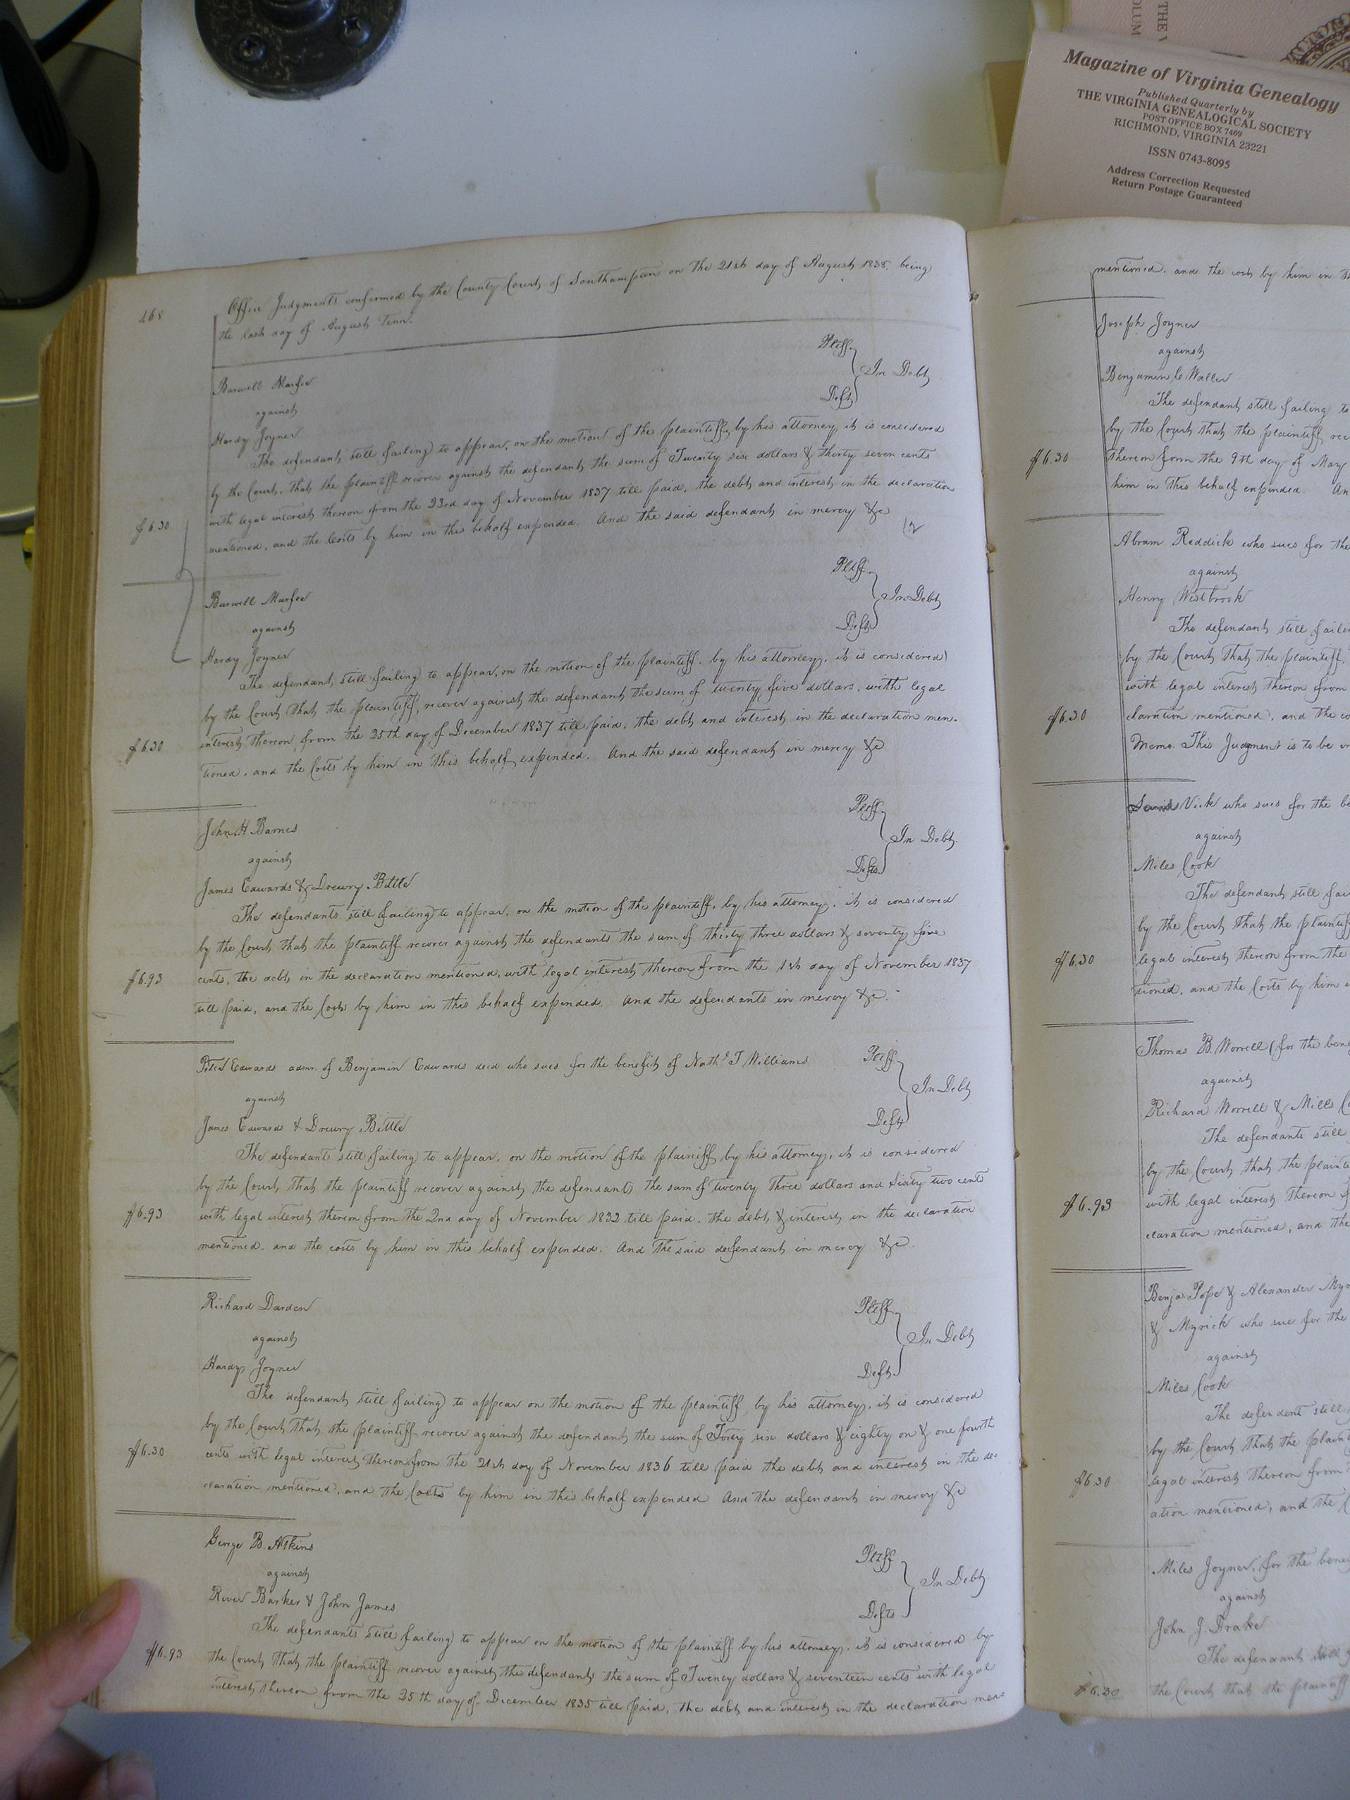 THE V
OLUM
Magazine of Virginia Genealogy
Published Quarterly by
THE VIRGINIA GENEALOGICAL SOCIETY
POST OFFICE BOX 7469
RICHMOND, VIRGINIA 23221
ISSN 0743-8095
Address Correction Requested
Return Postage Guaranteed
468
Office Judgments confirmed by the County Court of Southampton on the 21st day of August 1838, being
the last day of August Term.
Burwell
against
Hardy Joyner
Pltff
Deft
In Debt
The defendant still failing to appear, on the motion of the plaintiff, by his attorney, it is considered
by the Court, that the plaintiff recover against the defendant the sum of Twenty six dollars & thirty seven cents
with legal interest thereon from the 23rd day of November 1837 till paid, the debt and interest in the declaration
$6.30
mentioned, and the Costs by him in this behalf expended. And the said defendant in mercy &c
Burwell
against
Hardy Joyner
Pltff
Deft
In Debt
The defendant still failing to appear, on the motion of the plaintiff, by his attorney, it is considered
by the Court that the plaintiff, recover against the defendant the sum of twenty five dollars, with legal
interest thereon, from the 25th day of December 1837 till paid, the debt and interest in the declaration men-
$6.30
tioned, and the Costs by him in this behalf expended. And the said defendant in mercy &c
John H Barnes
against
James Edwards & Drewry Bittle
Pltff
Defts
In Debt
The defendants still failing to appear, on the motion of the plaintiff, by his attorney, it is considered
by the Court that the plaintiff recover against the defendants the sum of thirty three dollars & seventy five
$6.93
cents, the debt in the declaration mentioned, with legal interest thereon from the 1st day of November 1837
till paid, and the Costs by him in this behalf expended. And the defendants in mercy &c.
Edwards admr. of Benjamin Edwards decd who sues for the benefit of Nathl T Williams
against
James Edwards & Drewry Bittle
Pltff
Defts
In Debt
The defendants still failing to appear, on the motion of the plaintiff by his attorney, it is considered
by the Court, that the plaintiff recover against the defendants the sum of twenty three dollars and Sixty two cents
$6.93
with legal interest thereon from the 2nd day of November 1832 till paid, the debt & interest in the declaration
mentioned, and the costs by him in this behalf expended. And the said defendant in mercy &c
Richard Darden
against
Hardy Joyner
Pltff
Deft
In Debt
The defendant still failing to appear on the motion of the plaintiff by his attorney, it is considered
by the Court, that the plaintiff recover against the defendant the sum of Forty six dollars & eighty on & one fourth
$6.30
cents with legal interest thereon from the 21st day of November 1836 till paid the debt and interest in the de-
claration mentioned, and the Costs by him in this behalf expended And the defendant in mercy &c
George B. Atkins
against
River Barker & John James
Pltff
Defts
In Debt
The defendants still failing to appear on the motion of the plaintiff by his attorney, it is considered by
$6.93
the Court that the plaintiff recover against the defendants the sum of Twenty dollars & seventeen cents with legal
interest thereon from the 25th day of December 1835 till paid, the debt and interest in the declaration men-
mentioned, and the cost by him in
Joseph Joyner
against
Benjamin C Waller
The defendant still failing to
by the Court that the plaintiff
$6.30
thereon from the 9th day of May
him in this behalf expended. An
Abram Reddick who sues for the
against
Henry Westbrook
The defendant still
by the Court that the plaintiff,
with legal interest thereon from
$6.30
claration mentioned, and the
Memo. This Judgment is to be
Vick who sues for the
against
Miles Cook
The defendant still
by the Court that the
$6.30
legal interest thereon from the
tioned, and the Costs by him
Thomas B. Worrell (for the
against
Richard Worrell & Mills
The defendants still
by the Court that the
$6.93
with legal interest thereon
claration mentioned, and the
Benja Pope & Alexander
& Myrick who sue for the
against
Miles Cook
The defendent still
by the Court that the
$6.30
legal interest thereon from
ation mentioned, and the
Miles Joyner, for the
against
John J. Drake
The defendant still
$6.30
the Court that the plaintiff